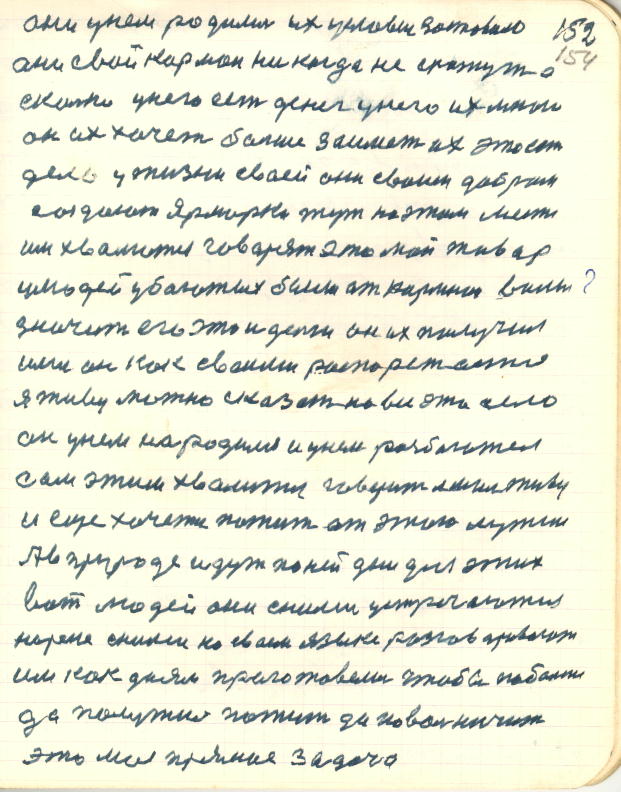 они унем родился их условия заставило 152
они свой карман никогда не скажут а 154
сколко унего ест денег унего их много
он их хочет болше заимет их это ест
дело у жизни своей они своим добром
создают ярморки тут на этом месте
им хвалится говарят это мой тавар
улюдей убагатих были ат кармана ?
значит его это идети он их получил
ими он как своими
я живу можно сказат на это село
он унем народился и унем разбагател
сам этим хвалится говорит я живу
и еще хочется пожит от этого лучше
Ав природе идут поней дни для этих
вот людей они сними устречаются
наречие сними на своем языке разговаривают
им как дням приготовели чтоб поболше
да получше пожит да
это моя прямая задача